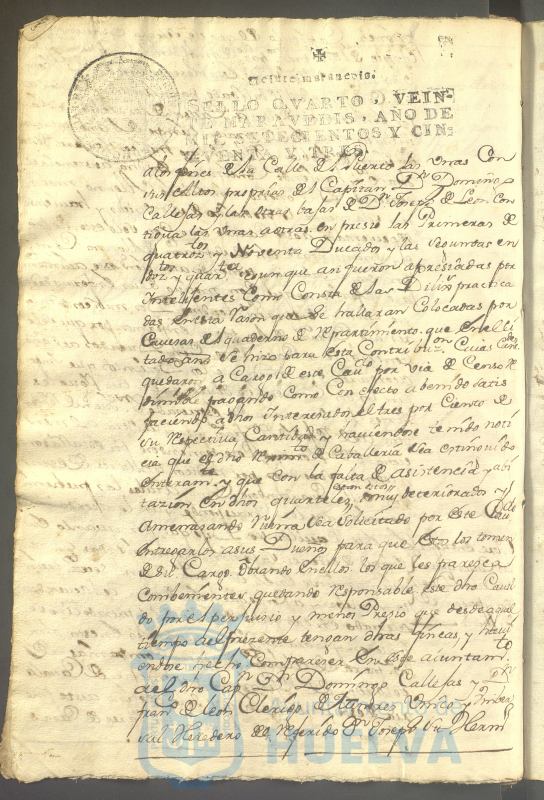 Veinte maravedis.
SELLO QVARTO, VEIN-
TE MARAVEDIS, AÑO DE
MIL SETECIENTOS Y CIN-
QVENTA Y TRES.
de la Calle del Puerto las vnas Con
propias del Capitan Dn Domingo
Callejas y las otras Casas de Dn Joseph de Leon Con
las vnas a otras en presio las Primeras de
quatroztos y Noventa Ducados y las segundas en
y que fueron apresiadas por
Intelijentes Como Consta de las Dilixs practica
das en esta rason que se hallaran Colocadas por
Cavesas del quaderno de Repartimiento que en el
tado año se hizo para esta Contribuon Cuias
quedaron a Cargo de este Cavdo por via de Censo Re
dimible pagando Como Con efecto a benido satis
faciendo a dhos Interesados el tres por Ciento de
su Respectiva Cantidad y haviendose tenido noti
cia que el dho de Cavalleria sea extinguido
enteramte y que con la falta de asistencia y abi
tazion en dhos quarteles muy deteriorados y
Amenazando Ruina sea solicitado por este
entregarlos a sus Dueños para que estos los tomen
de su Cargo obrando en ellos los que les paresca
Combeniente quedando responsable este dho Cavil
do por el perjuicio y menos Presio que desde aquel
tiempo al presente tengan dhas fincas, y
hecho Comparecer en este aiuntamto
al dho Capn Dn Domingo Callejas y a Dn
Franco de Leon Clerigo de Menores Vnico y Vniber
sal Heredero del Referido Dn Joseph su Hermo
HUELVA